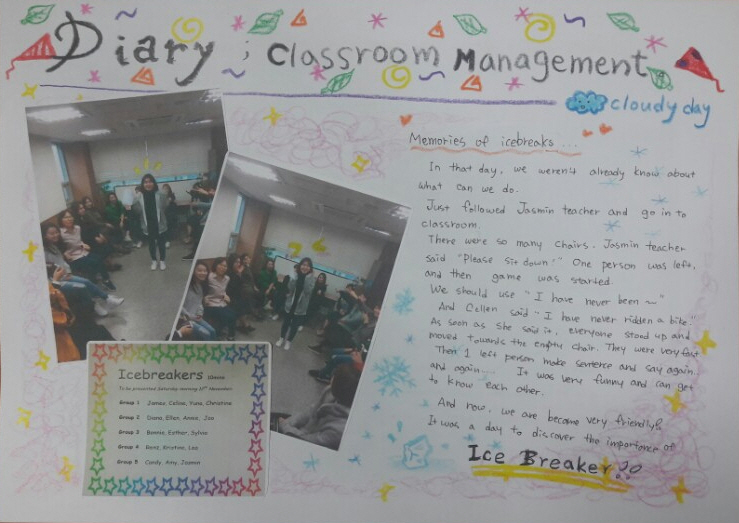 Diary ; Classroom Management
cloudy day
Memories of icebreaks ...
In that day, we weren't already know about
what can we do.
Just followed Jasmin teacher and go in to
classroom.
There were so many chairs. Jasmin teacher
said "Please sit down!" One person was left,
and then game was started.
We should use "I have never been ~"
And Cellen said "I have never ridden a bike."
As soon as she said it, everyone stood up and
moved towards the empty chair. They were very fast
Then 1 left person make sentence and say again
and again.... It was very funny and can get
to know each other.
And now, we are become very friendly!
It was a day to discover the importance of
Ice Breaker!!
Icebreakers
To be presented Saturday morning November
Group 1 James, Celina, Yuna, Christine
Group 2 Diana, Ellen, Annie, Jan
Group 3 Bonnie, Esther, Sylvia
Group 4 Rene, Kristine, Leo
Group 5 Candy, Amy, Jasmin